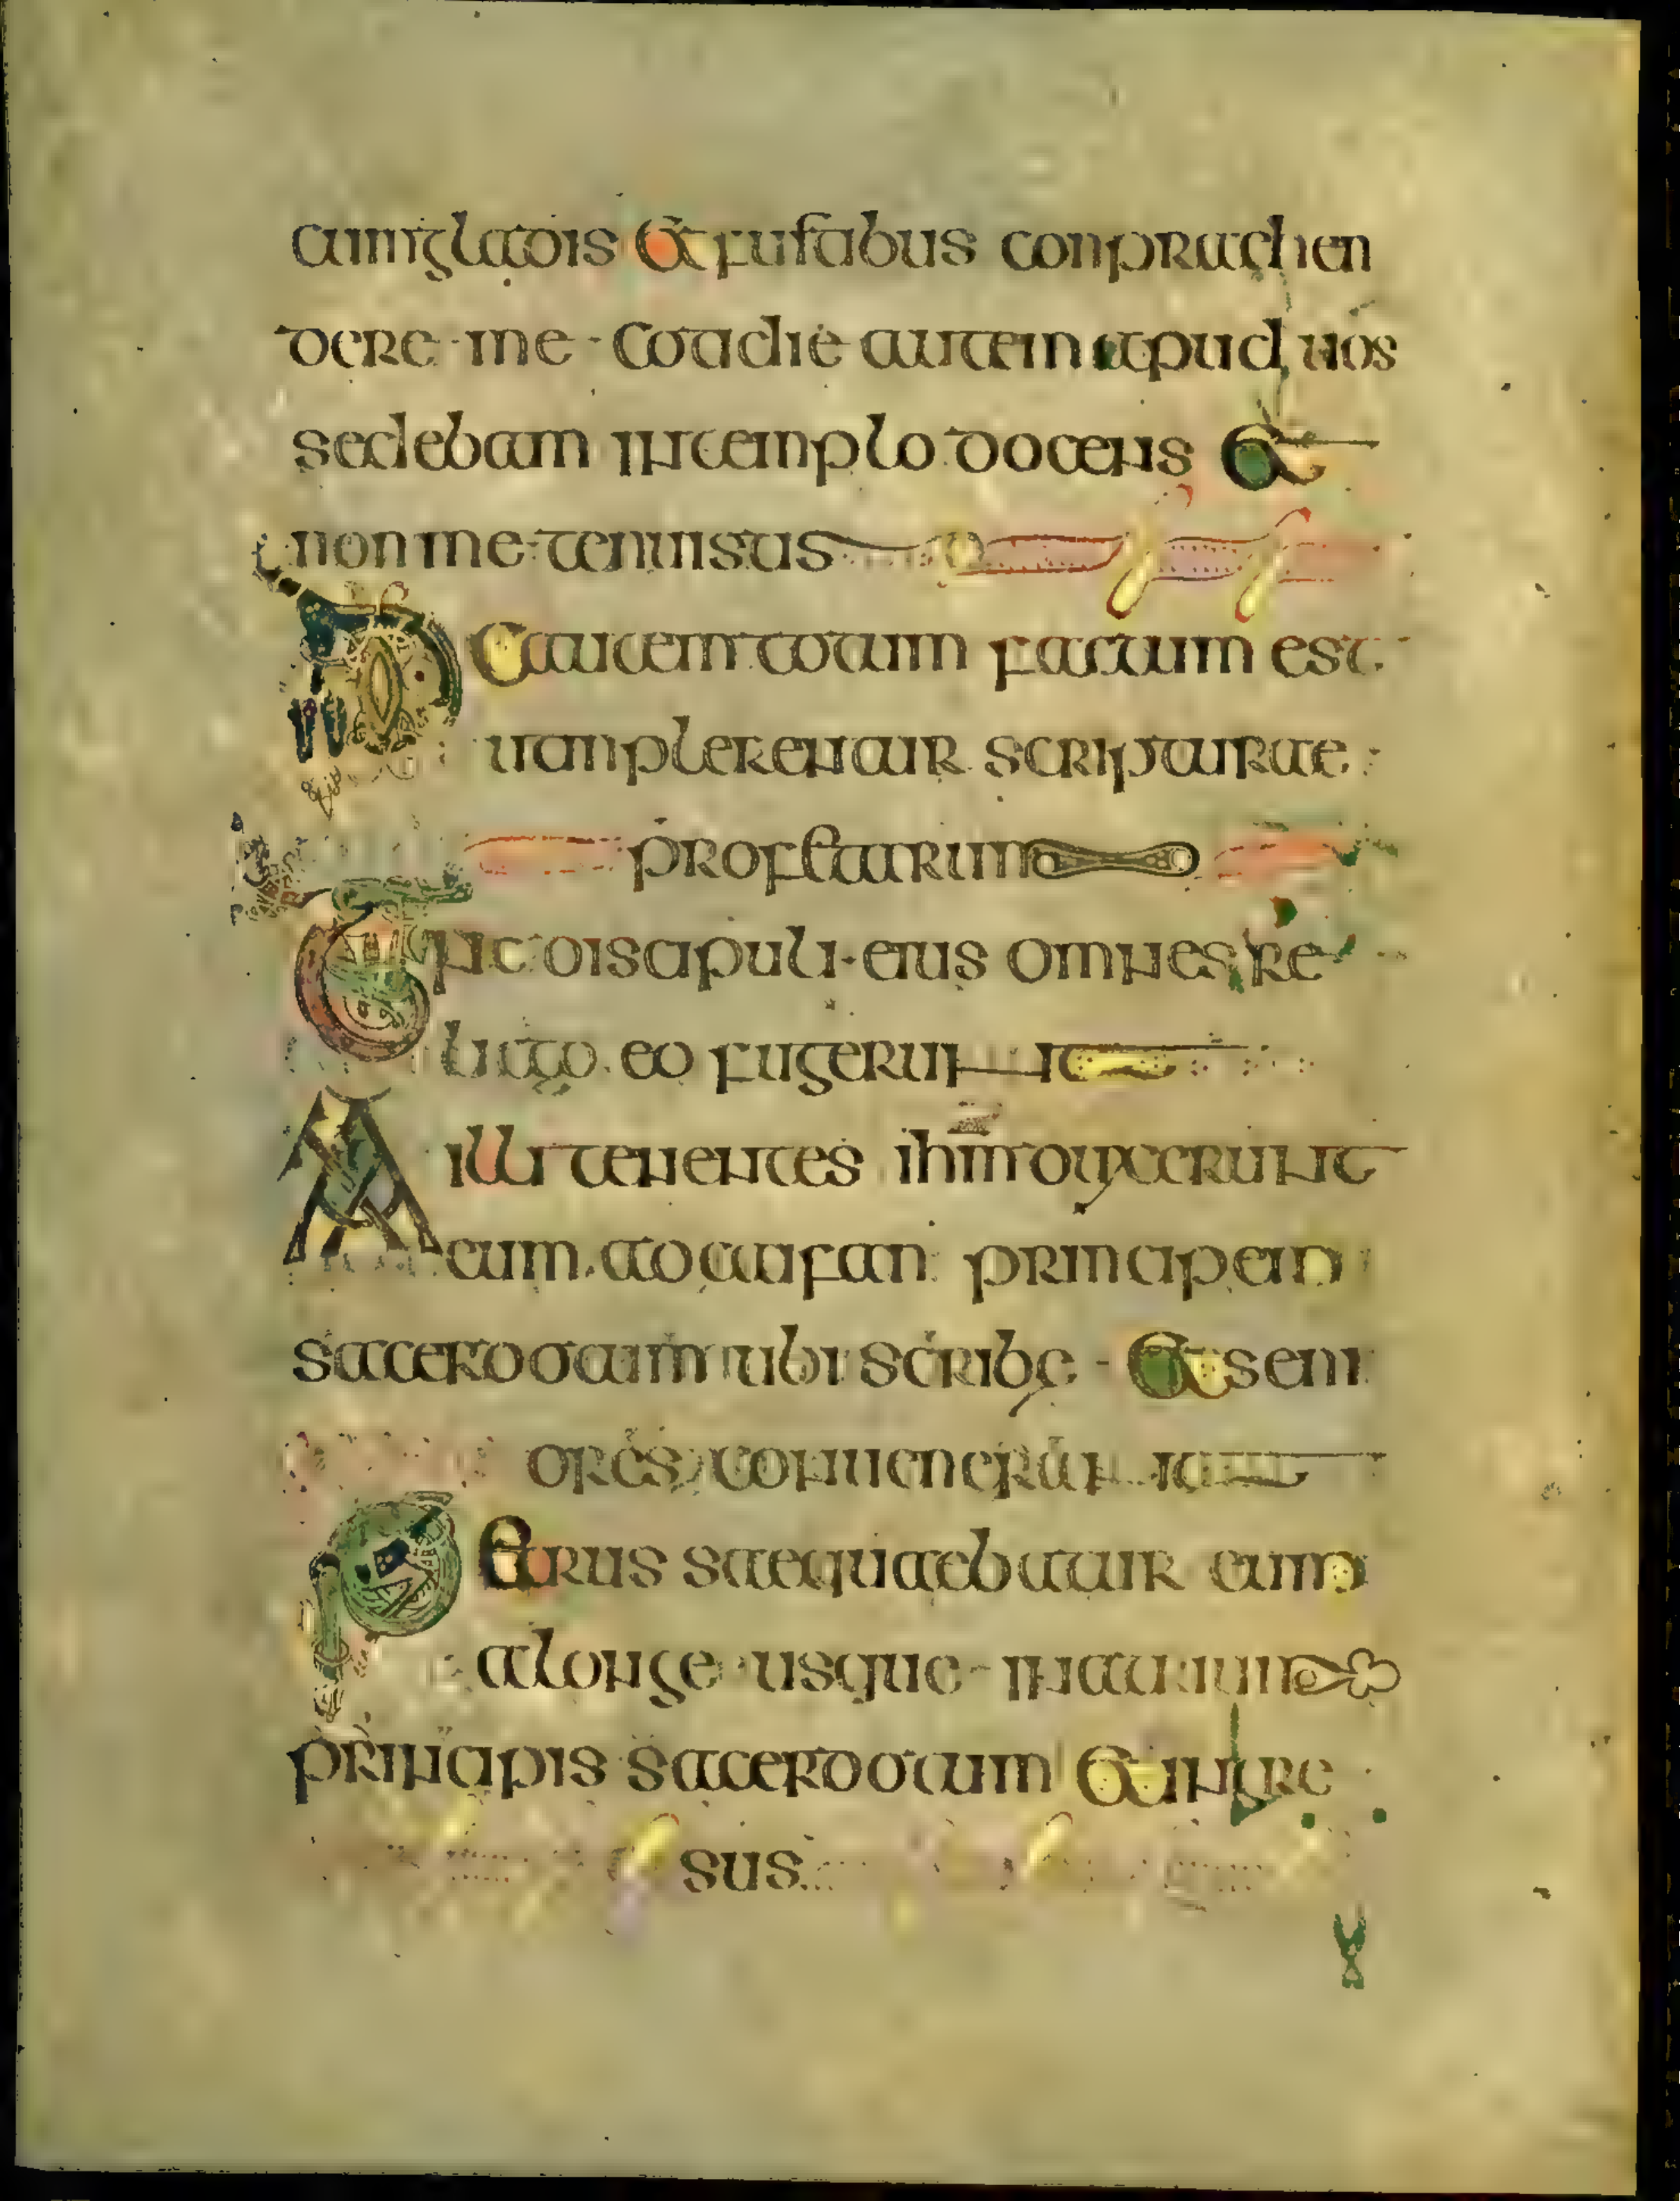 cumgladis et fustibus conpraehen
dere me cotidie autem apud uos
sedebam in templo docens et
non me tenuistis
hoc autem totum factum est
ut inplerentur scripturae
profetarum
Tunc discipuli eius omnes re
licto eo fugerunt
At illi tenentes ihm duxerunt
eum ad caifan principem
sacerdotum ubi scribę et seni
ores conuenerunt
Petrus saequaebatur eum
a longe usque in atrium
principis sacerdotum et intre
sus